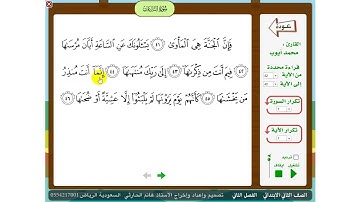 سُورَةُ النَّازِعَاتِ
فَإِنَّ الْجَنَّةَ هِيَ الْمَأْوَىٰ ٤١ يَسْأَلُونَكَ عَنِ السَّاعَةِ أَيَّانَ مُرْسَاهَا
٤٢ فِيمَ أَنتَ مِن ذِكْرَاهَا ٤٣ إِلَىٰ رَبِّكَ مُنتَهَاهَا ٤٤ إِنَّمَا أَنتَ مُنذِرُ
مَن يَخْشَاهَا ٤٥ كَأَنَّهُمْ يَوْمَ يَرَوْنَهَا لَمْ يَلْبَثُوا إِلَّا عَشِيَّةً أَوْ ضُحَاهَا ٤٦
عودة
القارئ :
محمد أيوب
قراءة محددة
من الآية
إلى الآية
تكرار السورة
تكرار الآية
تشغيل
إيقاف
الصف الثاني الابتدائي
الفصل الثاني
تصميم وإعداد وإخراج الأستاذ غانم الحارثي السعودية الرياض 0554257001